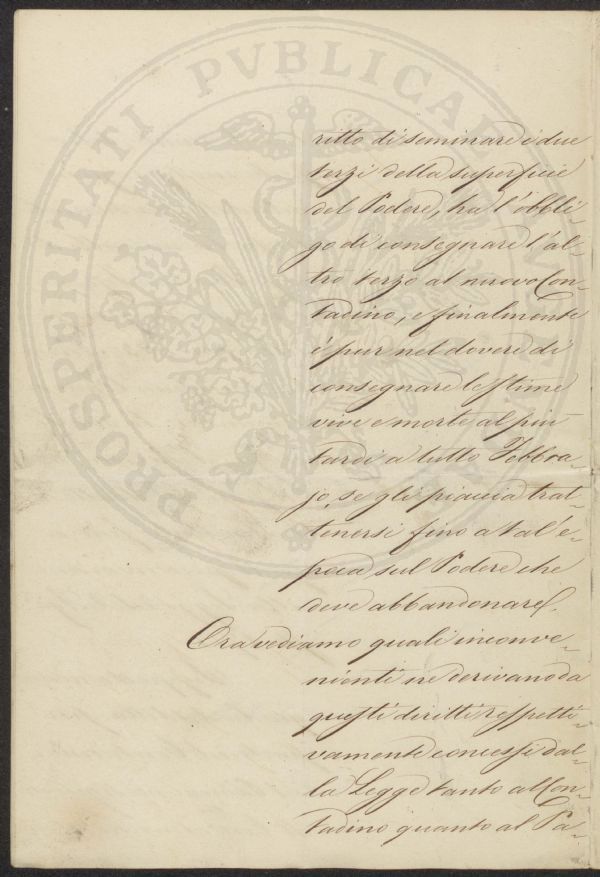 PROSPERITATI PVBLICAE
ritto di seminare i due
terzi della superficie
del Podere, ha l'obbli-
go di consegnare l'al-
tro terzo al nuovo Con-
tadino, e finalmente
è pur nel dovere di
consegnare le stime
vive e morte al più
tardi a tutto Febbra-
jo, se gli piaccia trat-
tenersi fino a tal'e-
poca sul Podere che
deve abbandonare.
Ora vediamo quali inconve-
nienti ne derivano da
questi diritti rispetti-
vamente concessi dal-
la Legge tanto al Con-
tadino quanto al Pa-